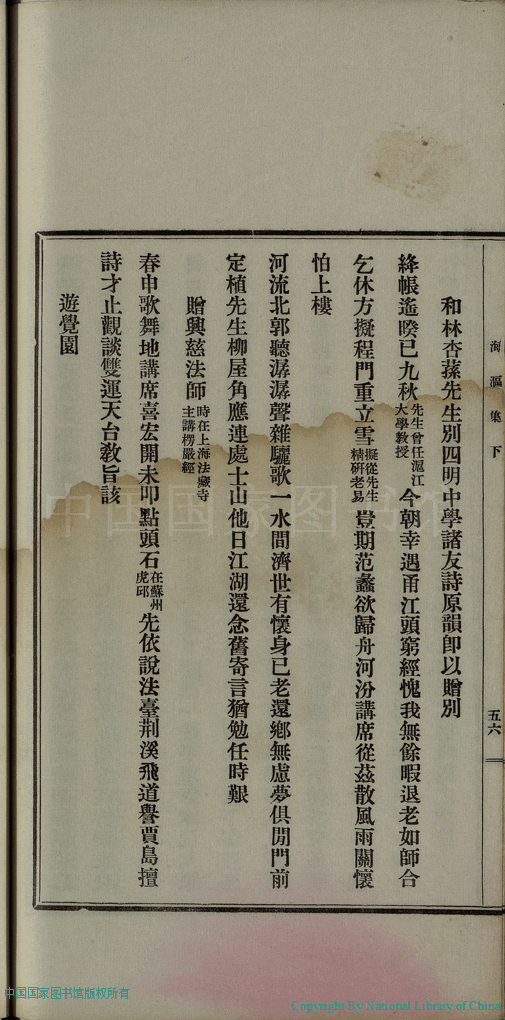 海漚集下
五六
和林杏蓀先生別四明中學諸友詩原韻卽以贈別
絳帳遙暌已九秋先生曾任滬江大學教授今朝幸遇甬江頭窮經愧我無餘暇退老如師合
乞休方擬程門重立雪擬從先生精研老易豈期范蠡欲歸舟河汾講席從茲散風雨關懷
怕上樓
河流北郭聽潺潺聲雜驪歌一水間濟世有懷身已老還鄉無慮夢俱閒門前
定植先生柳屋角應連處士山他日江湖還念舊寄言猶勉任時艱
贈興慈法師時在上海法藏寺主講楞嚴經
春申歌舞地講席喜宏開未叩點頭石在蘇州虎邱先依說法臺荆溪飛道譽賈島擅
詩才止觀談雙運天台敎旨該
遊覺園
中国国家图书馆
中国国家图书馆版权所有
Copyright By National Library of China